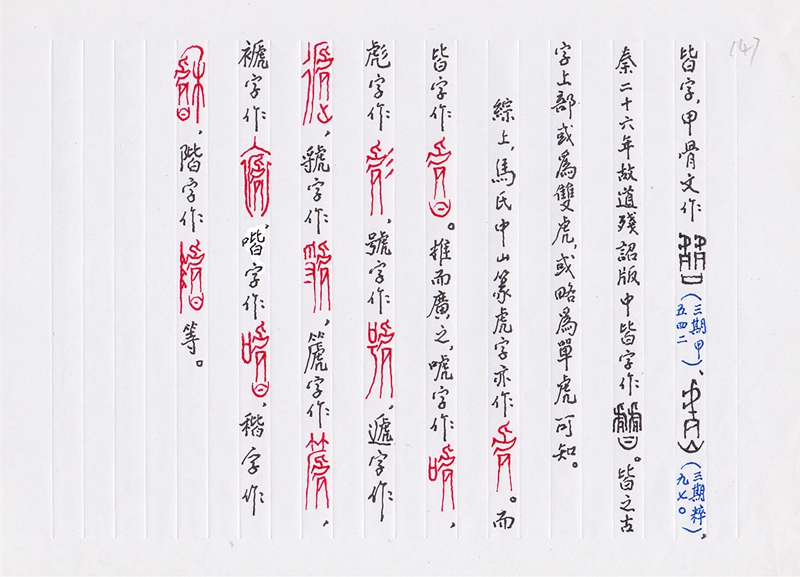 147
皆字,甲骨文作(三期甲五四二)、(三期粹九七〇),
秦二十六年故道殘詔版中皆字作。皆之古
字上部或為雙虎,或略為單虎可知。
綜上,馬氏中山篆虎字亦作。而
皆字作。推而廣之,唬字作,
彪字作,號字作,遞字作
,虢字作,篪字作,
褫字作,喈字作,稭字作
,階字作等。